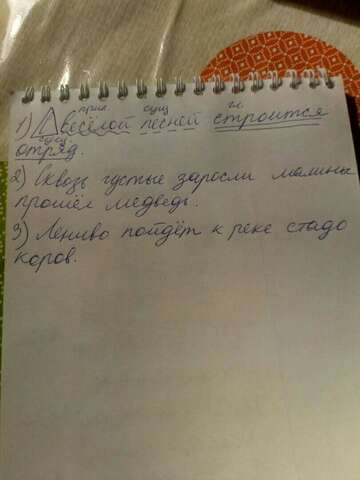 прил. сущ. гл.
1) С весёлой песней строится
сущ.
отряд.
2) Сквозь густые заросли малины
прошёл медведь.
3) Лениво пойдёт к реке стадо
коров.